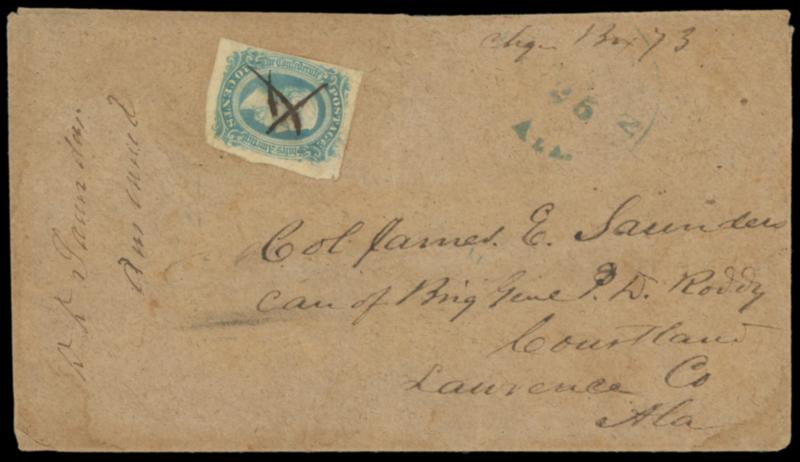 Chge Box 73
The Confederate
States of America
POSTAGE
TEN CENTS
25
Ala
Col. James. E. Saunders
care of Brig Genl P. D. Roddy
Courtland
Lawrence Co
Ala
Saunders
Answered